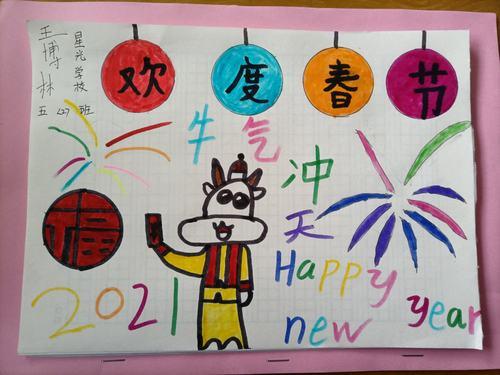 王博林
星光学校
五(2)班
欢度春节
牛气
冲
天
福
2021
Happy
new year